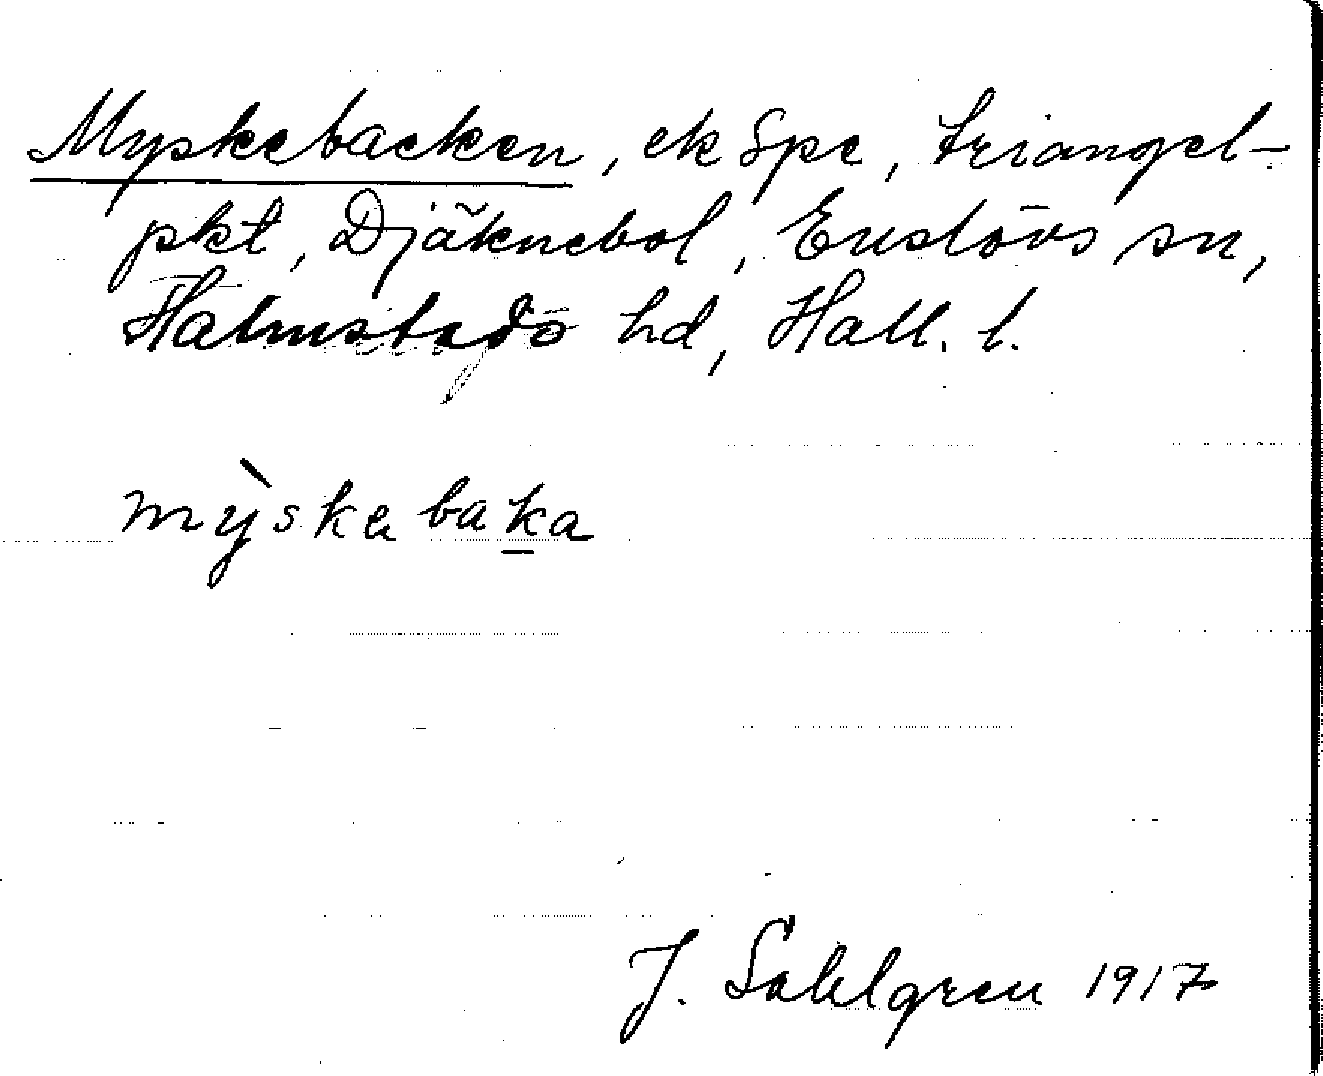 Myskebacken, ek Spe, triangel-
pkt, Djäknebol, Enslövs sn,
Halmstads hd, Hall. l.
mỳskabaka
J. Sahlgren 1917